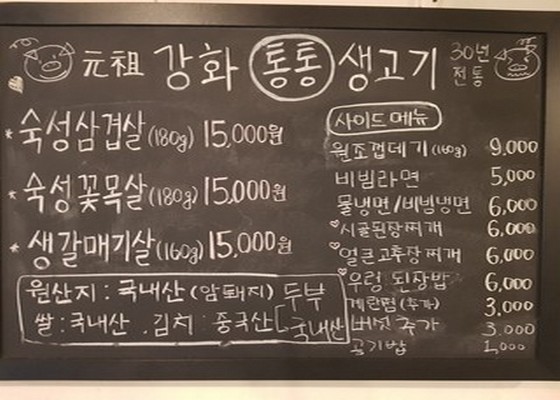 元祖 강화 통통 생고기 30년 전통
숙성삼겹살(180g) 15,000원
숙성꽃목살(180g) 15,000원
생갈매기살(160g) 15,000원
원산지: 국내산(암퇘지) 두부
쌀:국내산 . 김치: 중국산 국내산
사이드메뉴
원조껍데기(160g) 9,000
비빔라면 5,000
물냉면/비빔냉면 6,000
시골된장찌개 6,000
얼큰고추장찌개 6,000
우렁 된장밥 6,000
계란찜(추가) 3,000
버섯추가 3,000
공기밥 1,000